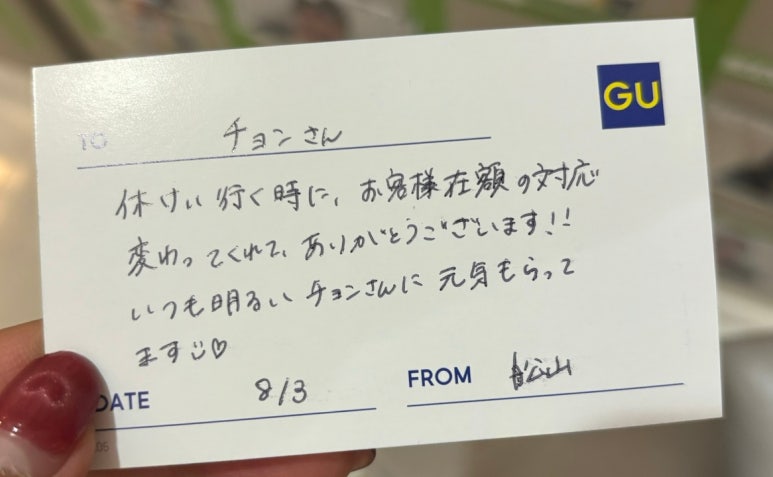 GU
TO チョンさん
休けい行く時に、お客様在額の対応
変わってくれて、ありがとうございます!!
いつも明るいチョンさんに元気もらって
ます☺♡
DATE 8/3
FROM 舩山